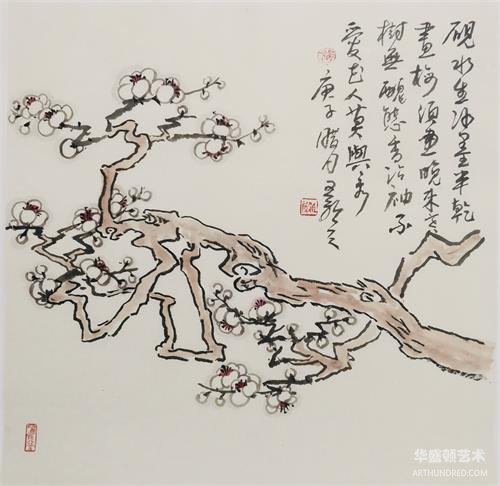 硯水生冰墨半乾
畫梅須畫晚来寒
樹無醜態香沾袖不
愛花人莫與看
庚子腊月
华盛顿艺术
ARTHUNDRED.COM